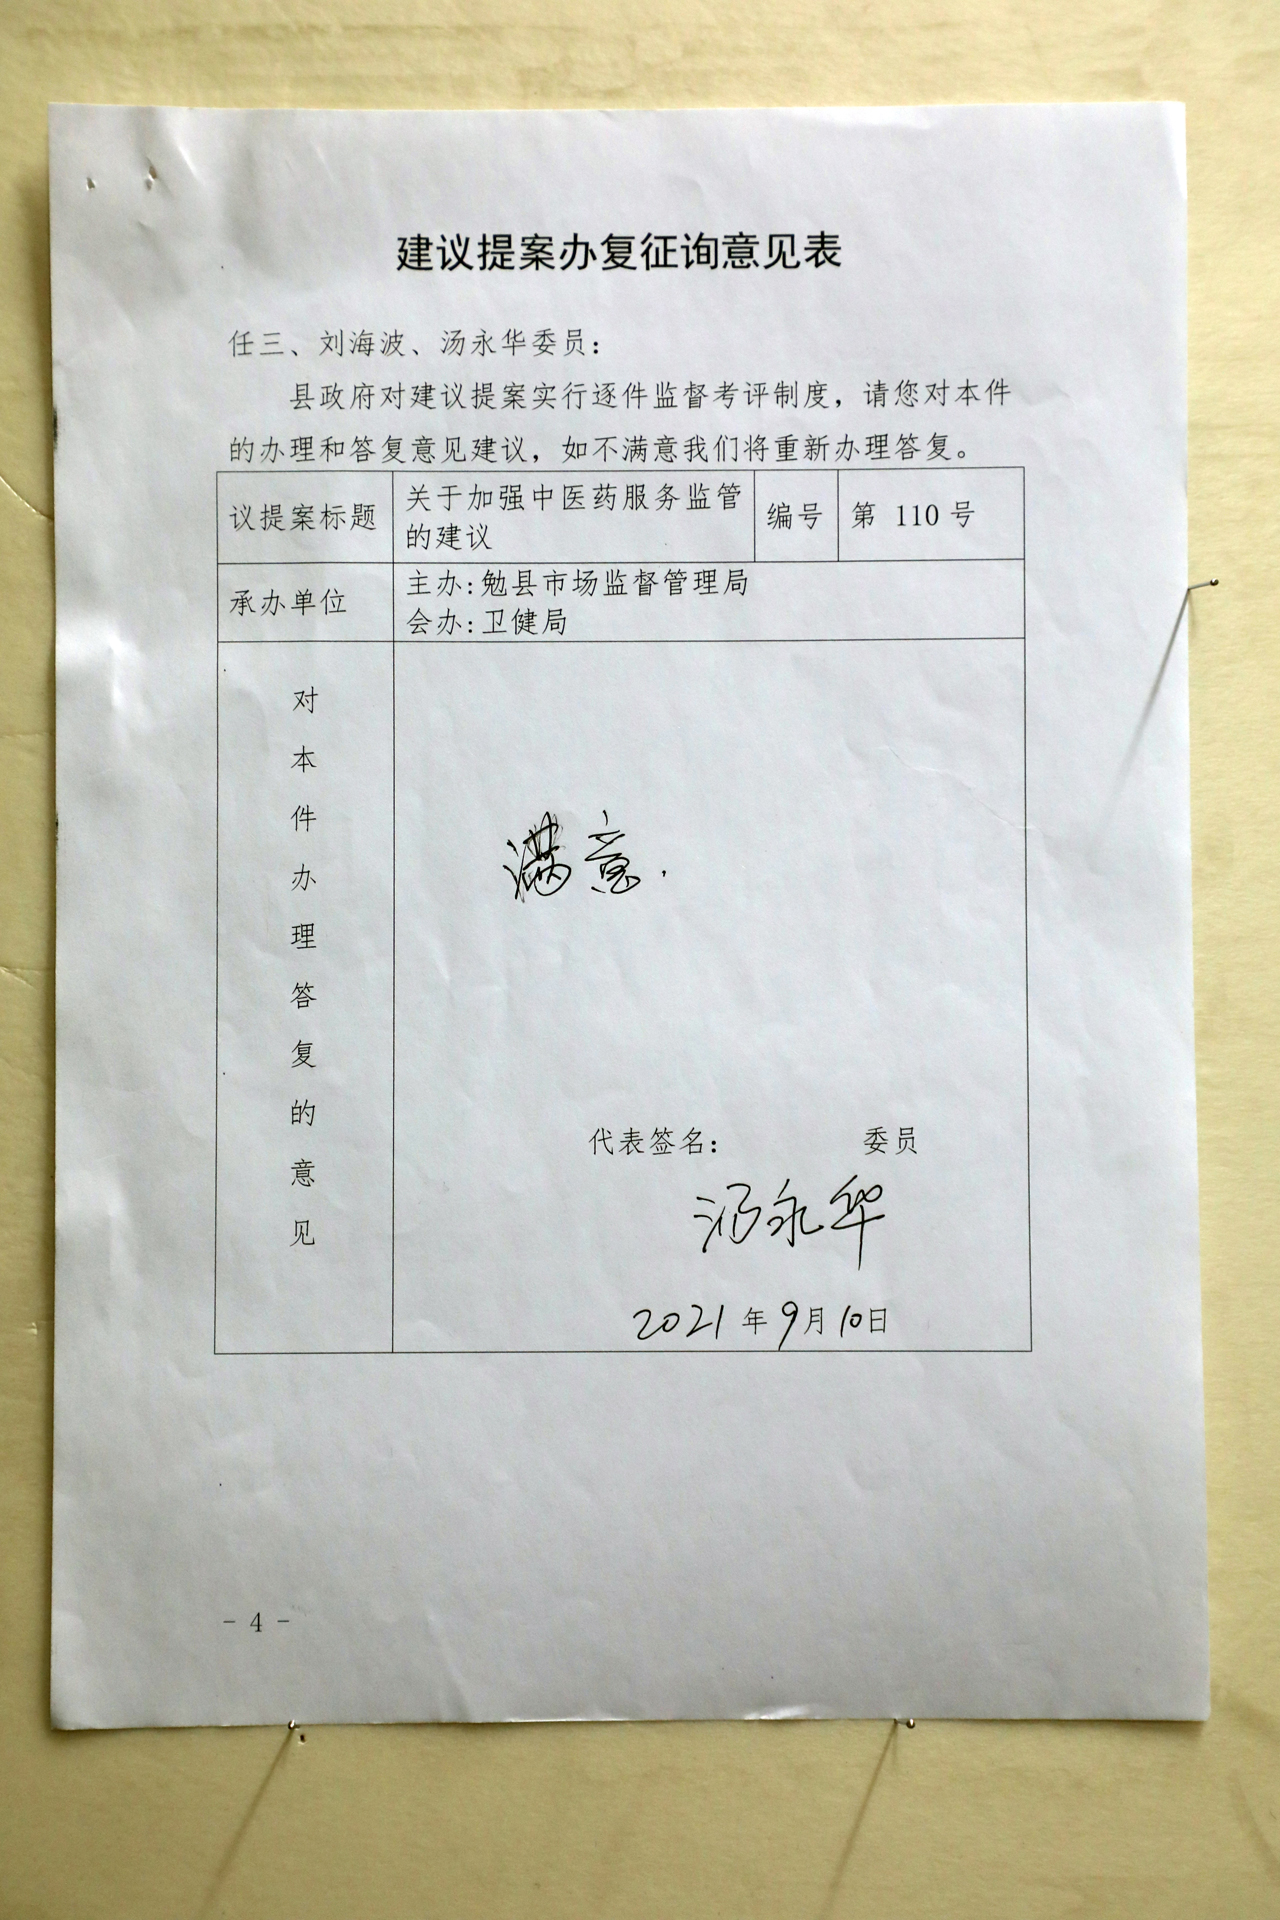 建议提案办复征询意见表
任三、刘海波、汤永华委员：
县政府对建议提案实行逐件监督考评制度，请您对本件
的办理和答复意见建议，如不满意我们将重新办理答复。
议提案标题 关于加强中医药服务监管 编号 第 110 号
的建议
承办单位 主办：勉县市场监督管理局
会办：卫健局
对
本
件
办
理
答
复
的
意
见
满意.
代表签名： 委员
汤永华
2021年9月10日
- 4 -